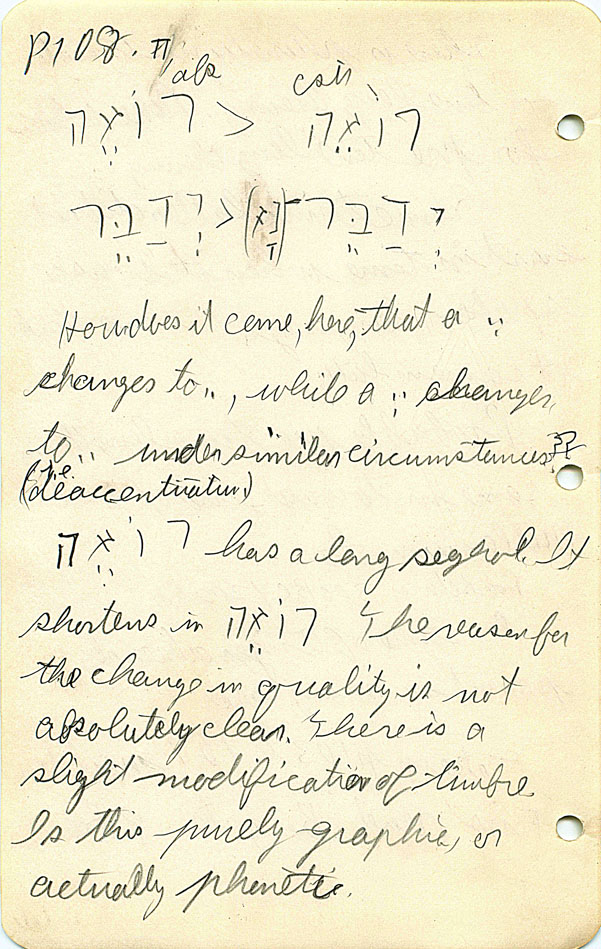 p108. II
abs cstr.
רוֹאֶה > רוֹאֵה
יְדַבֵּר > יְדַבֶּר־(נָא)
How does it come, here, that a ֶ
changes to ֵ , while a ֵ changes
to ֶ under similar circumstances??
(deaccentuation)
רוֹאֶה has a long seghol. It
shortens in רוֹאֵה The reason for
the change in quality is not
absolutely clear. There is a
slight modification of timbre
Is this purely graphic, or
actually phonetic.